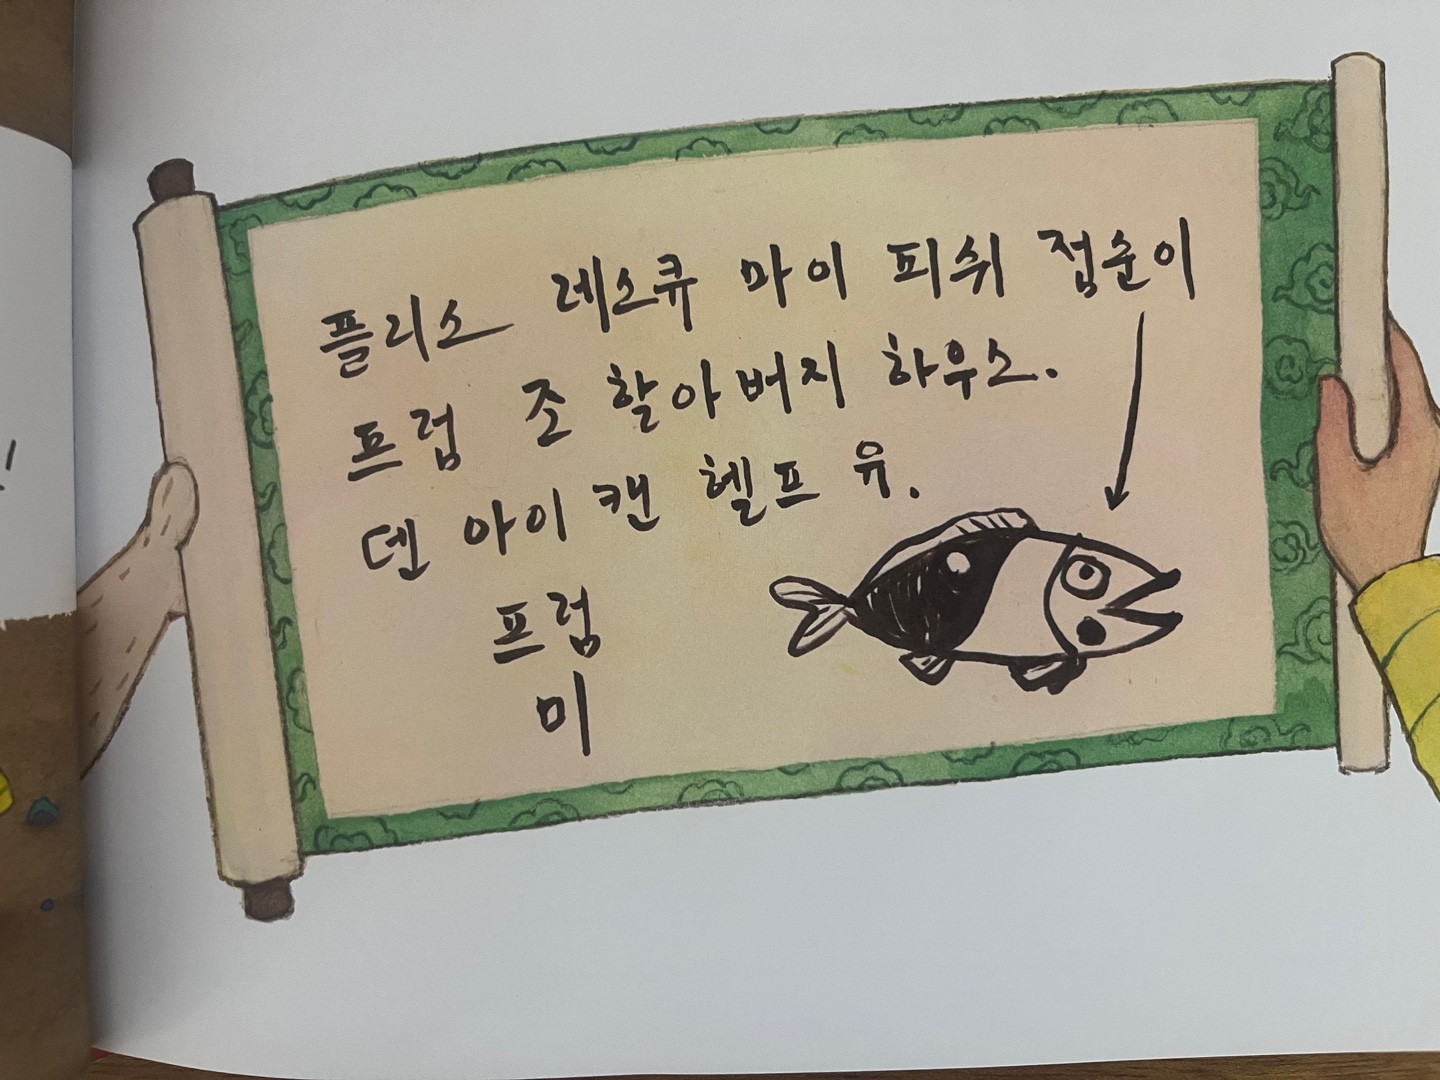 플리소 레소큐 마이 피쉬 점순이
프럼 조 할아버지 하우소.
덴 아이 캔 헬프 유.
프럼
미
!